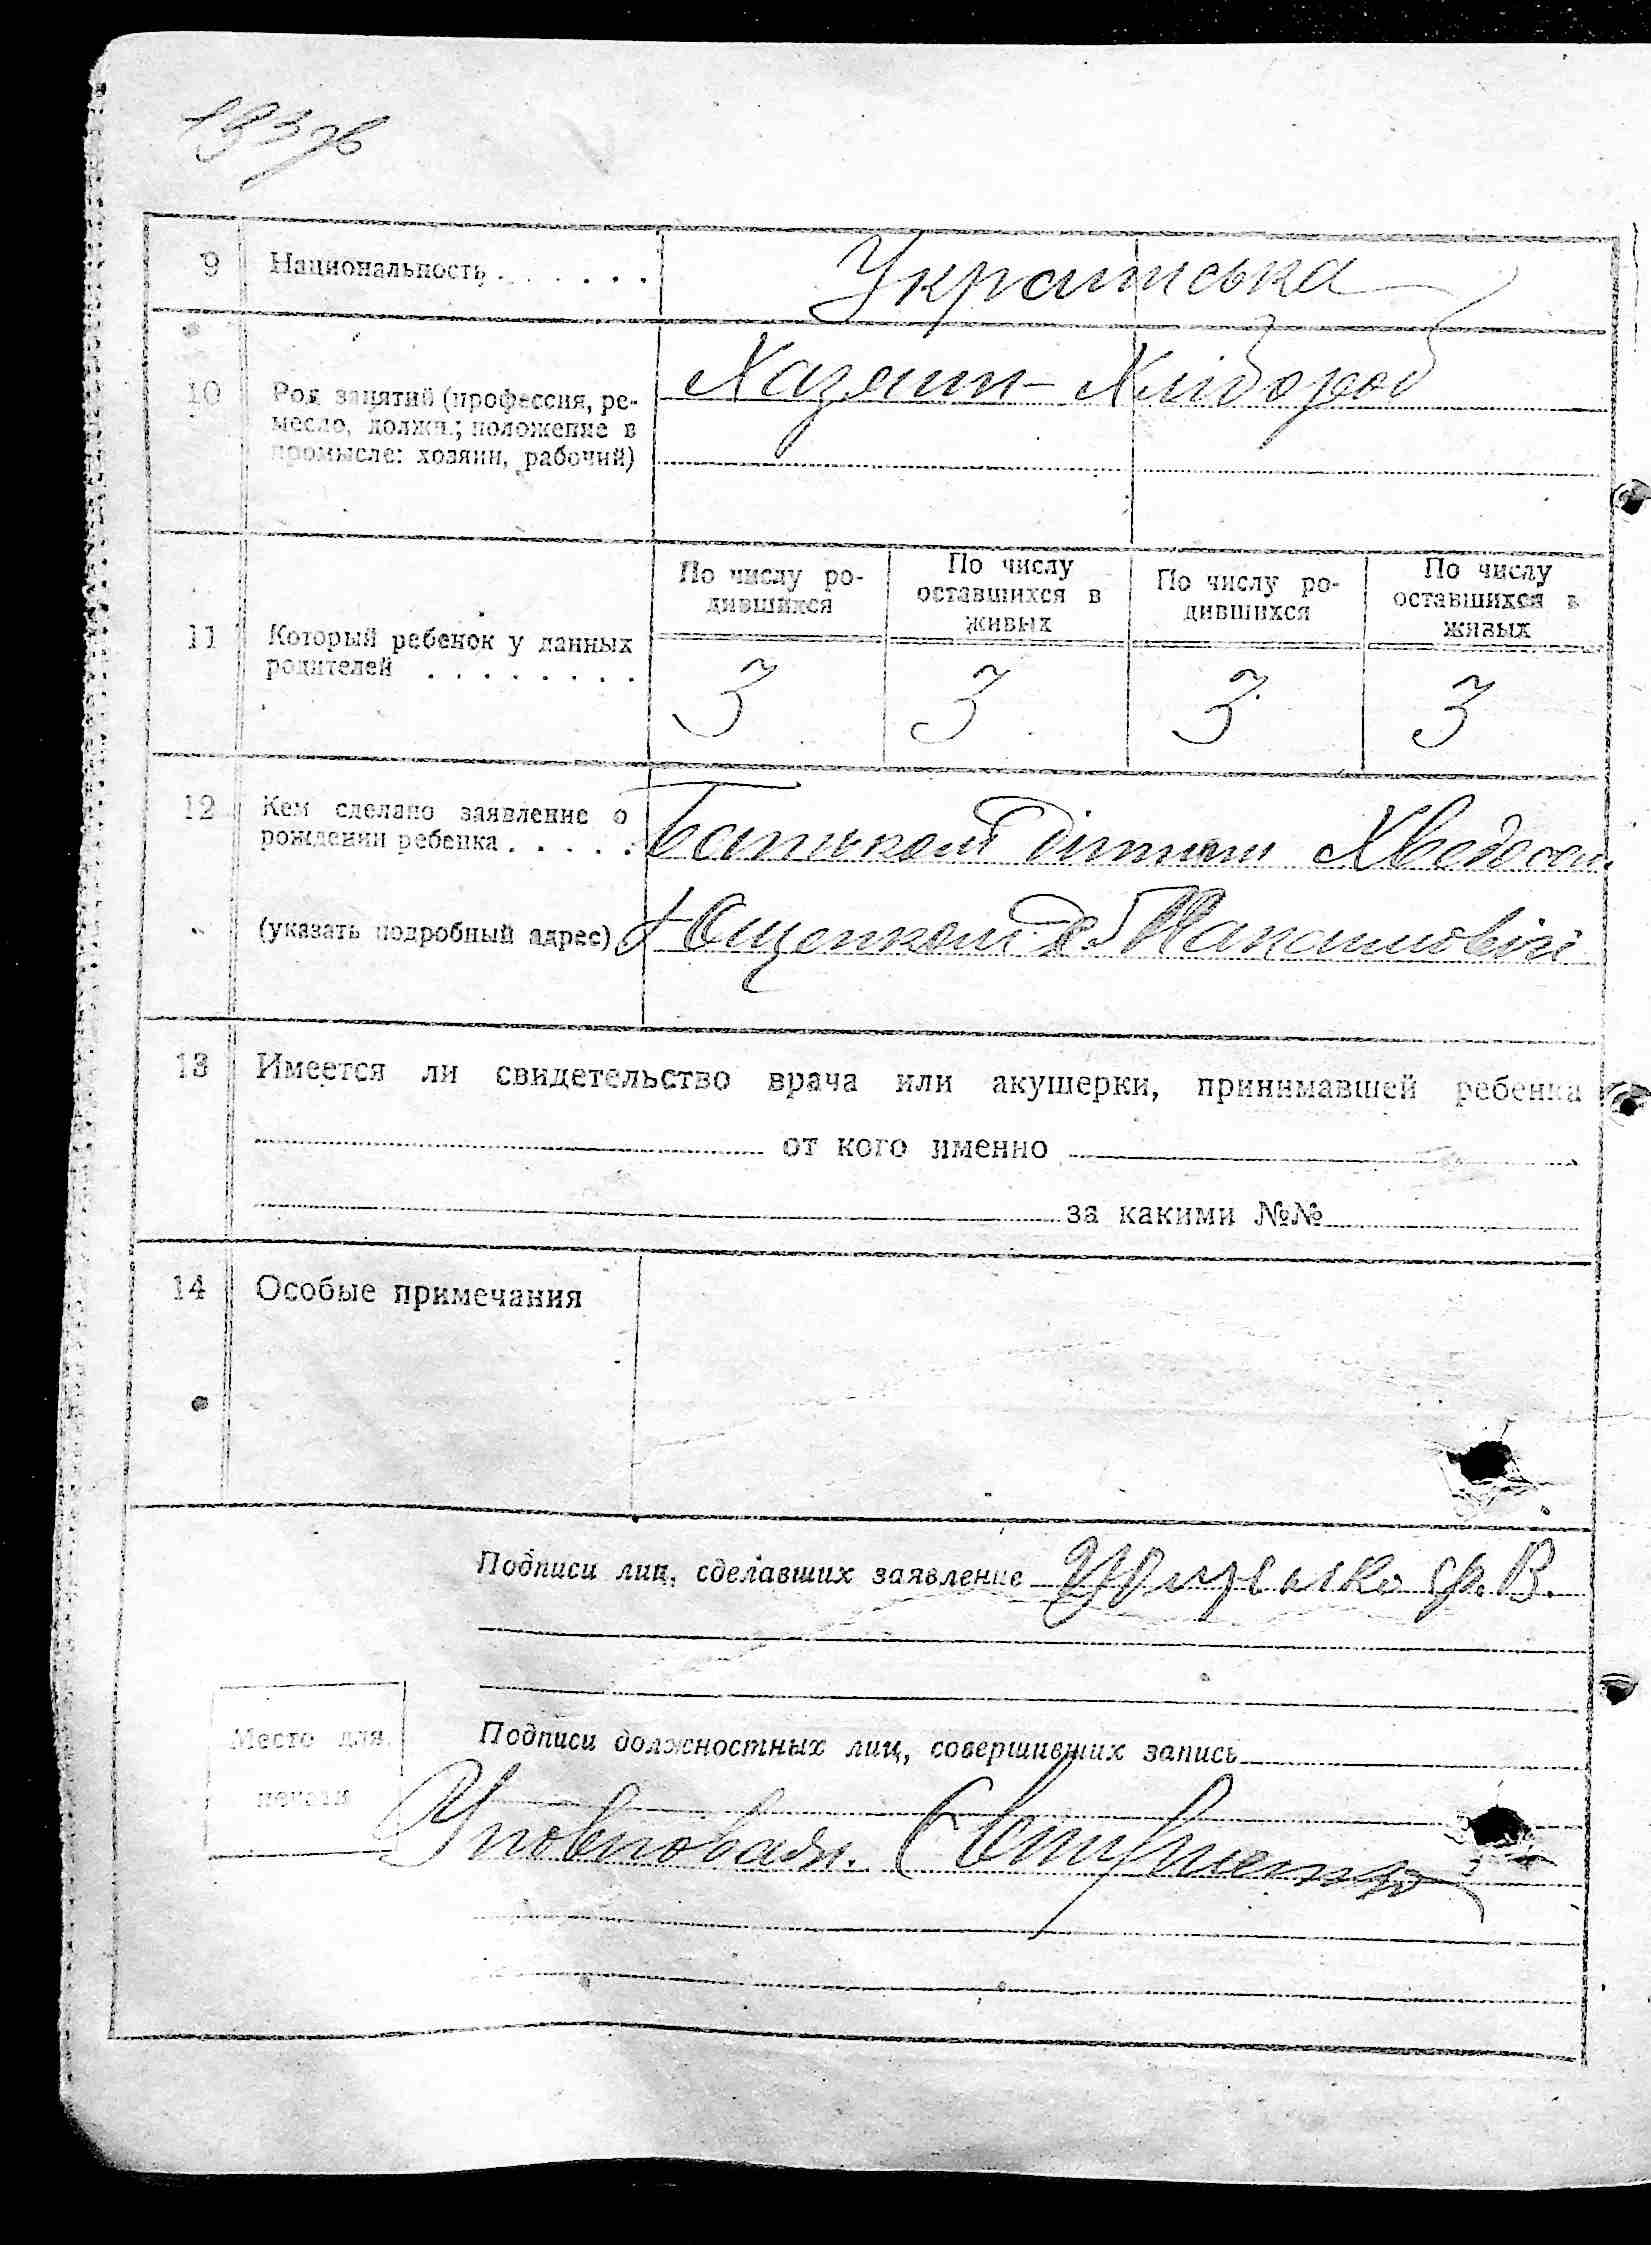 193 зв
9 Национальность . . . . . . Українська
10 Род занятий (профессия, ре-
месло, должн.; положение в
промысле: хозяин, рабочий)
Хазяин - Хлібороб
По числу ро-
дившихся
По числу
оставшихся в
живых
По числу ро-
дившихся
По числу
оставшихся в
живых
11 Который ребенок у данных
родителей . . . . . . . .
3 3 3 3
12 Кем сделано заявление о
рождении ребенка . . . . .
Батьком дитини Хведосом
(указать подробный адрес) Ющенком
13 Имеется ли свидетельство врача или акушерки, принимавшей ребенка
от кого именно
за какими №№
14 Особые примечания
Подписи лиц, сделавших заявление
Место для
печати
Подписи должностных лиц, совершивших запись